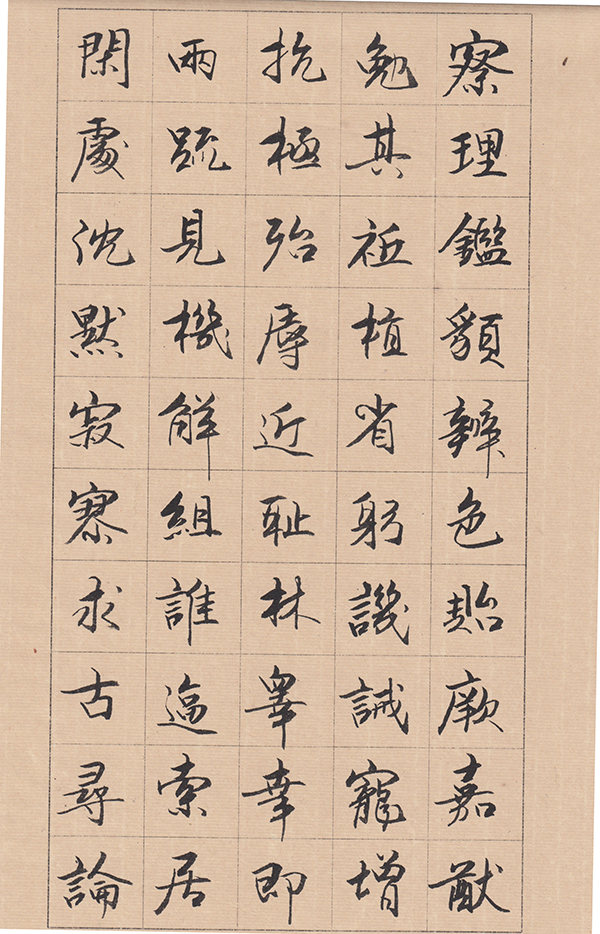 察理鑑貌辨色貽厥嘉猷
勉其祗植省躬譏誡寵增
抗極殆辱近耻林睾幸即
兩疏見機解組誰逼索居
閑處沈默寂寥求古尋論